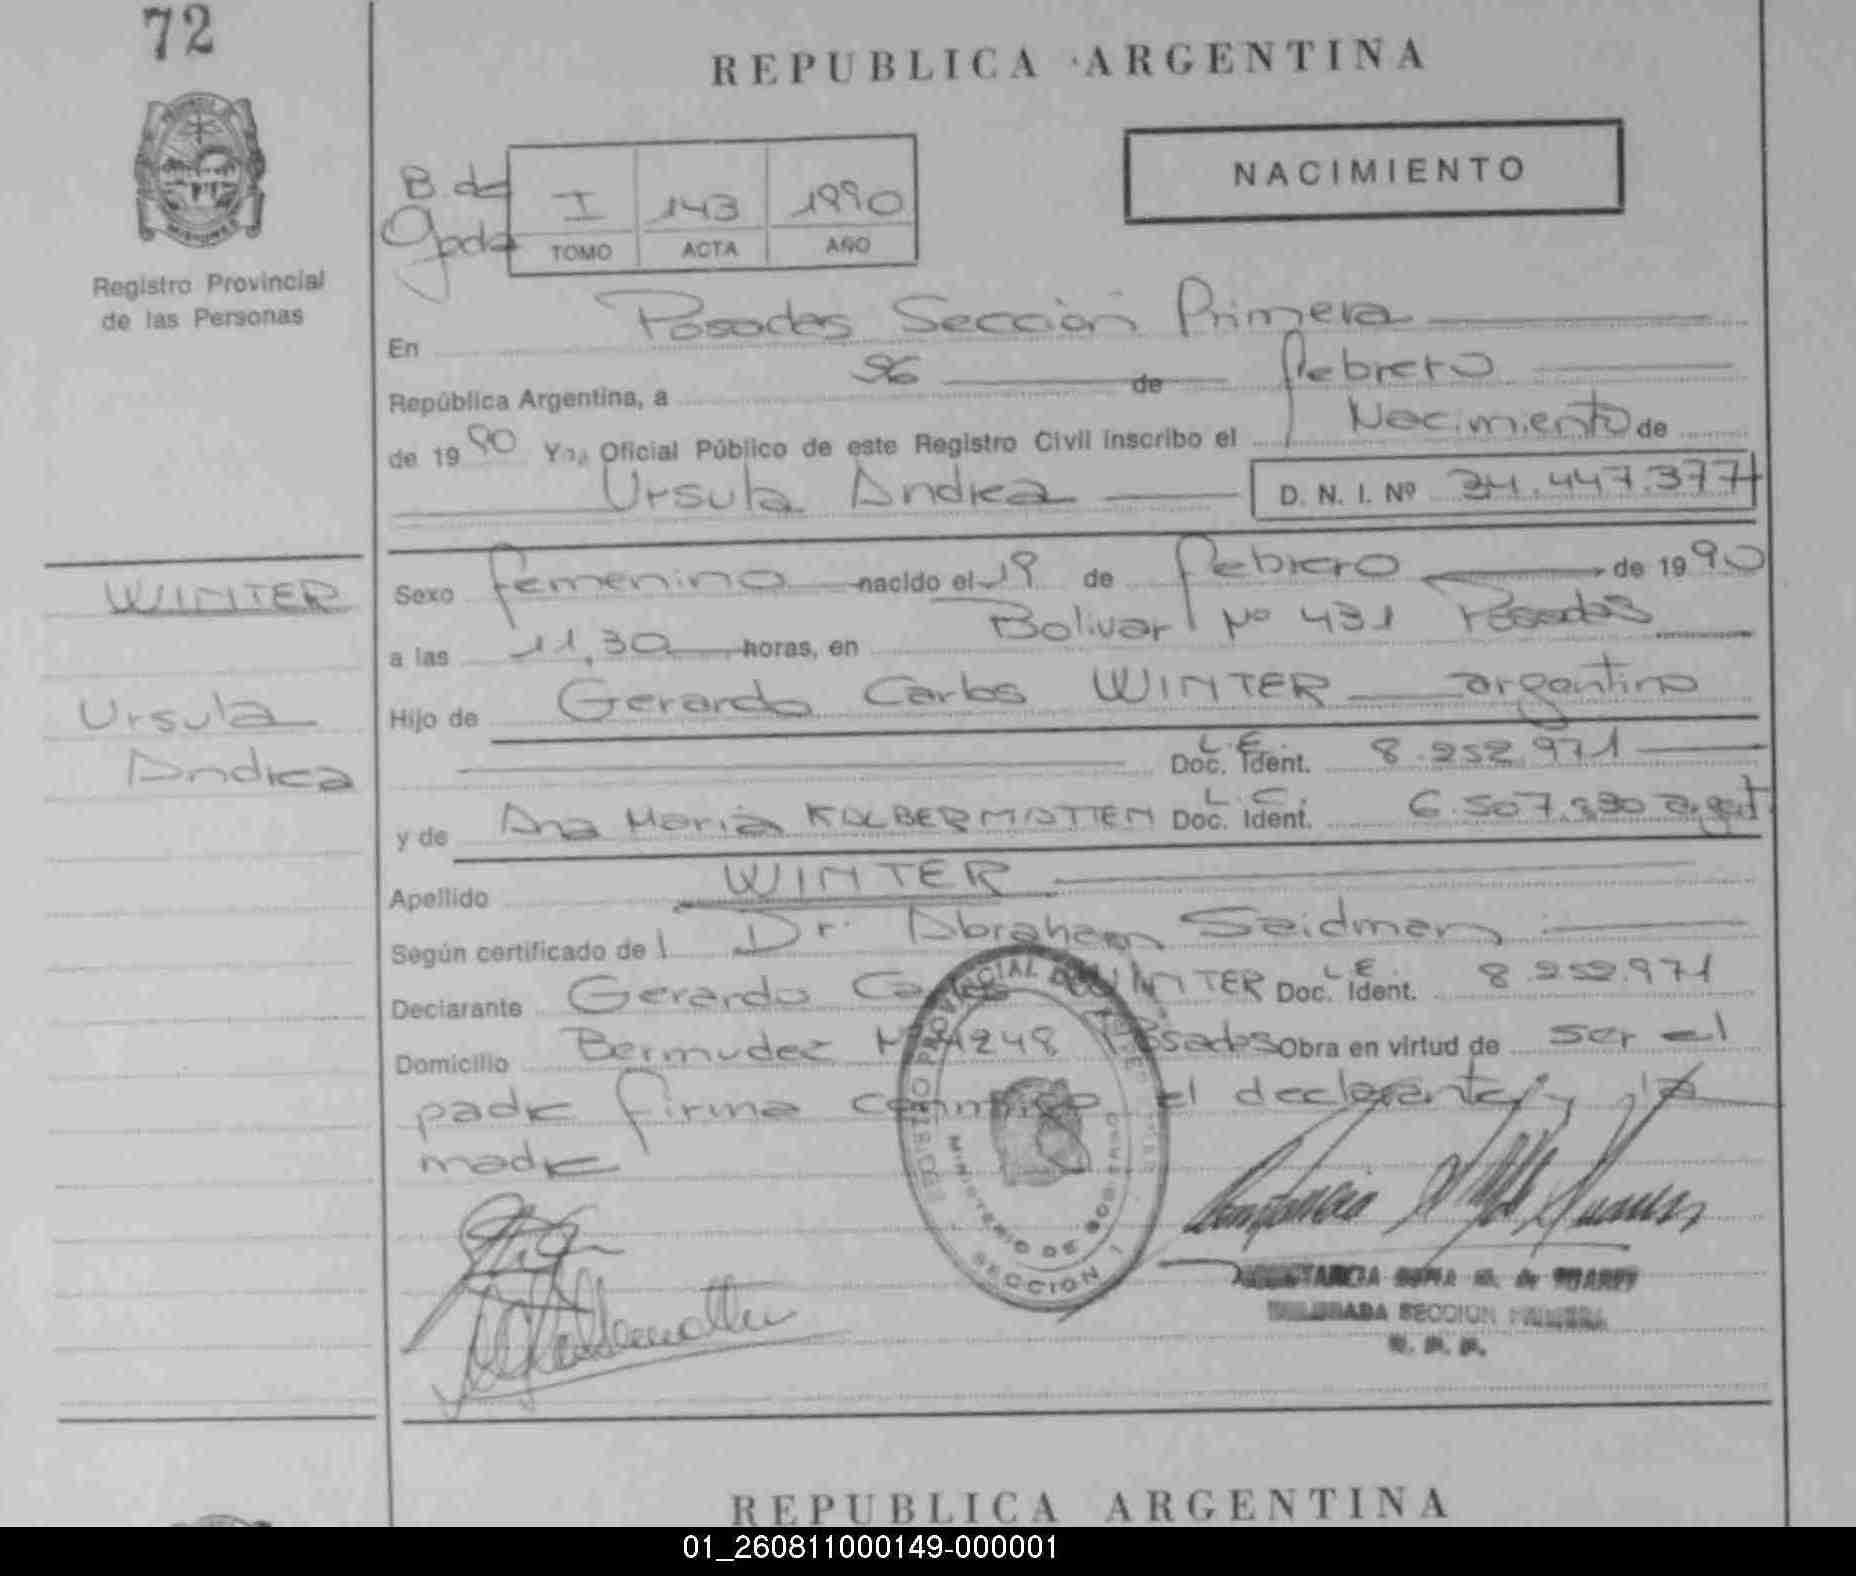 72
REPUBLICA ARGENTINA
NACIMIENTO
B. de
I 143 1990
TOMO ACTA AÑO
Registro Provincial
de las Personas
En Posadas Sección Primera
República Argentina, a 26 de febrero
de 1990 Yo, Oficial Público de este Registro Civil inscribo el Nacimiento de
Ursula Andrea D. N. I. Nº 34.447.377
WINTER
Sexo femenino nacido el 19 de febrero de 1990
a las 11,30 horas, en Bolivar Nº 431 Posadas
Ursula
Andrea
Hijo de Gerardo Carlos WINTER argentino
L.E.
Doc. Ident. 8.252.971
L.C.
y de Ana Maria KALBERMATTEN Doc. Ident. 6.507.230 argent
Apellido WINTER
Según certificado de l Dr. Abraham Seidman
Declarante Gerardo Carlos WINTER Doc. Ident. L.E. 8.252.971
Domicilio Bermudez Nº 1248 Posadas Obra en virtud de ser el
padre firma conmigo el declarante y la
madre
MINISTERIO DE GOBIERNO
SECCION 1
SECCION PRIMERA
R. P. P.
REPUBLICA ARGENTINA
01_260811000149-000001